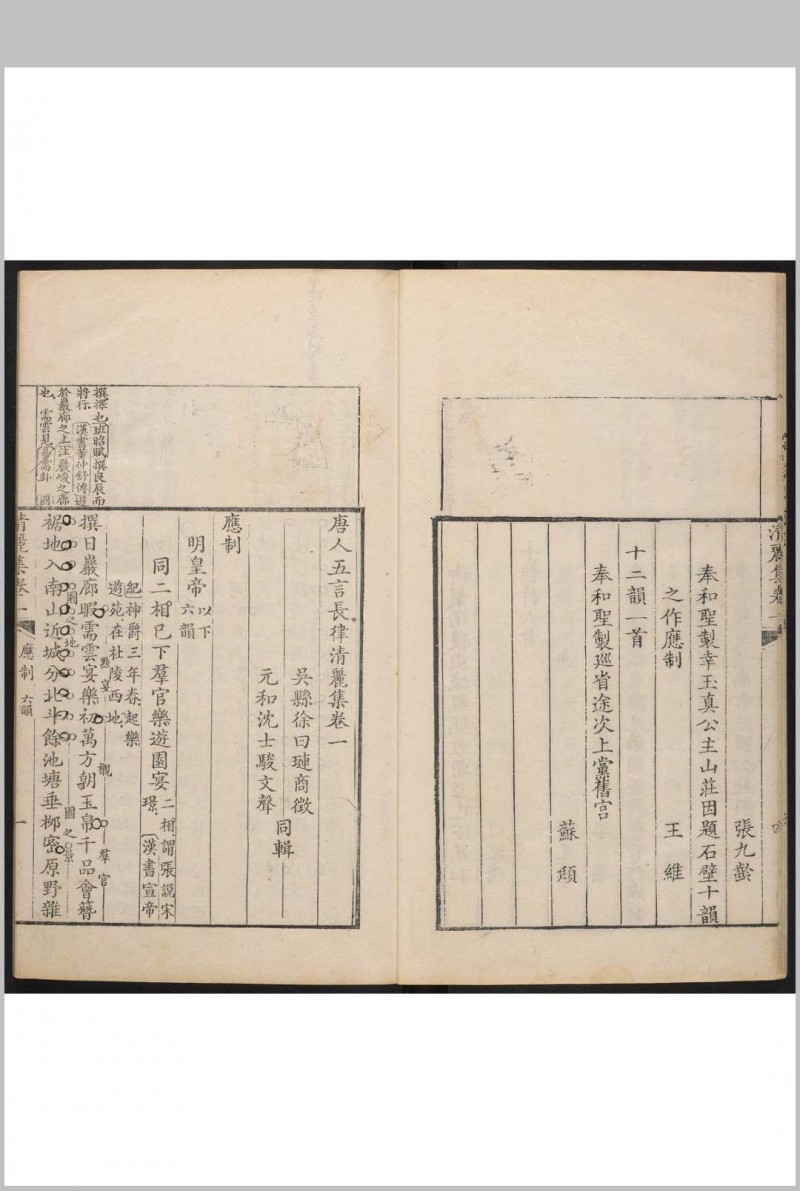 張九齡
奉和聖製幸玉真公主山莊因題石壁十韻
之作應制 王維
十二韻一首
奉和聖製巡省途次上黨舊宮
蘇頲
唐人五言長律清麗集卷一
吳縣徐曰璉商徵
同輯
元和沈士駿文聲
應制
明皇帝 以下六韻
同二相已下羣官樂遊園宴 二相謂張說宋璟漢書宣帝
紀神爵三年春起樂
遊苑在杜陵西地
撰日巖廊暇需雲宴樂初萬方朝玉帛千品會簪
點宴 觀 羣官
裾地入南山近城分北斗餘池塘垂柳密原野雜
園之地 園之景
清麗集卷一 應制 六韻 一
撰擇也班昭賦撰良辰而
將行 漢書董仲舒傳遊
於巖廊之上注巖峻之廊
也 需雲見易需卦